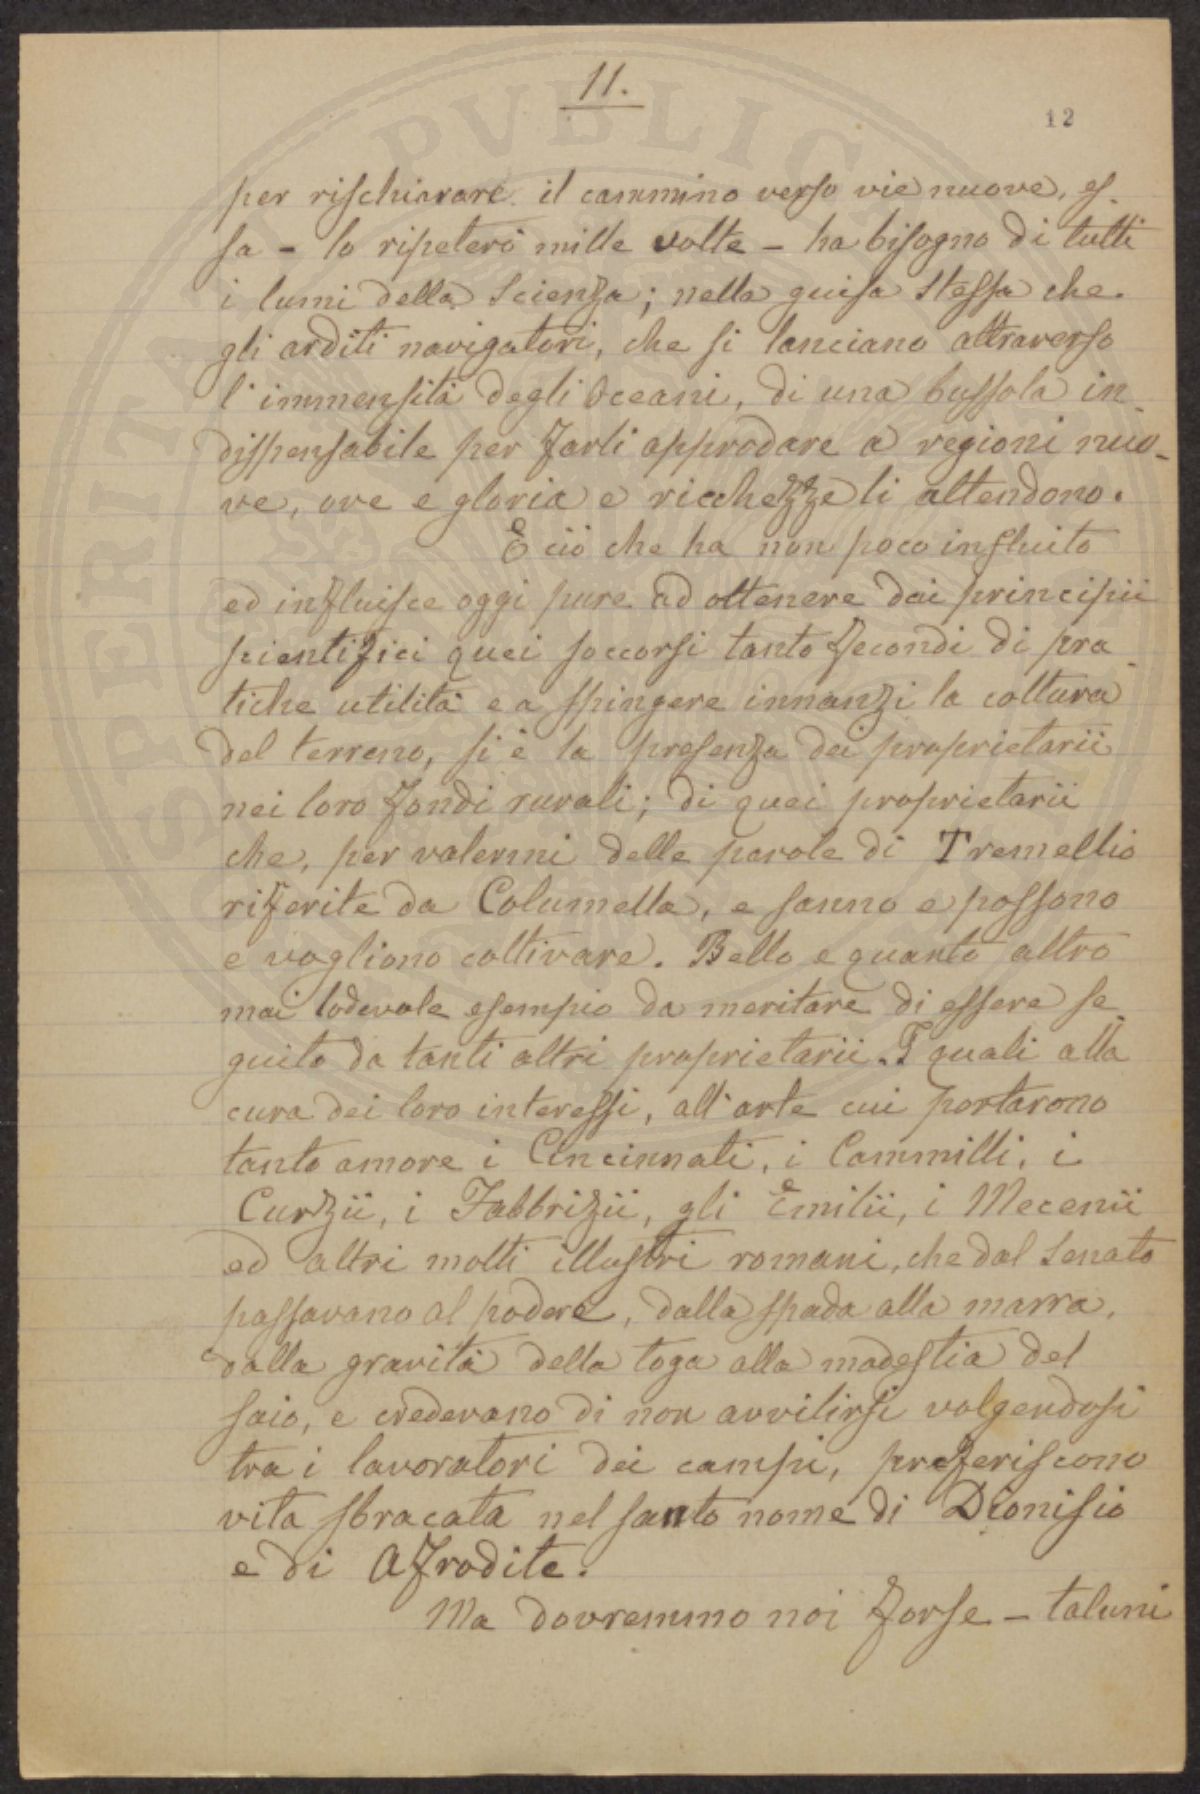 11.
12
per rischiarare il cammino verso vie nuove, es-
sa - lo ripeterò mille volte - ha bisogno di tutti
i lumi della Scienza; nella guisa stessa che
gli arditi navigatori, che si lanciano attraverso
l'immensità degli Oceani, di una bussola in-
dispensabile per farli approdare a regioni nuo-
ve, ove e gloria e ricchezze li attendono.
E ciò che ha non poco influito
ed influisce oggi pure ad ottenere dai principii
scientifici quei soccorsi tanto fecondi di pra-
tiche utilità e a spingere innanzi la coltura
del terreno, si è la presenza dei proprietarii
nei loro fondi rurali; di quei proprietarii
che, per valermi delle parole di Tremellio
riferite da Columella, e sanno e possono
e vogliono coltivare. Bello e quanto altro
mai lodevole esempio da meritare di essere se-
guito da tanti altri proprietarii. I quali alla
cura dei loro interessi, all'arte cui portarono
tanto amore i Cincinnati, i Cammilli, i
Curzii, i Fabbrizii, gli Emilii, i Mecenii
ed altri molti illustri romani, che dal Senato
passavano al podere, dalla spada alla marra,
dalla gravità della toga alla modestia del
saio, e credevano di non avvilirsi volgendosi
tra i lavoratori dei campi, preferiscono
vita sbracata nel santo nome di Dionisio
e di Afrodite.
Ma dovremmo noi forse - taluni
SPERITAT PVBLICA